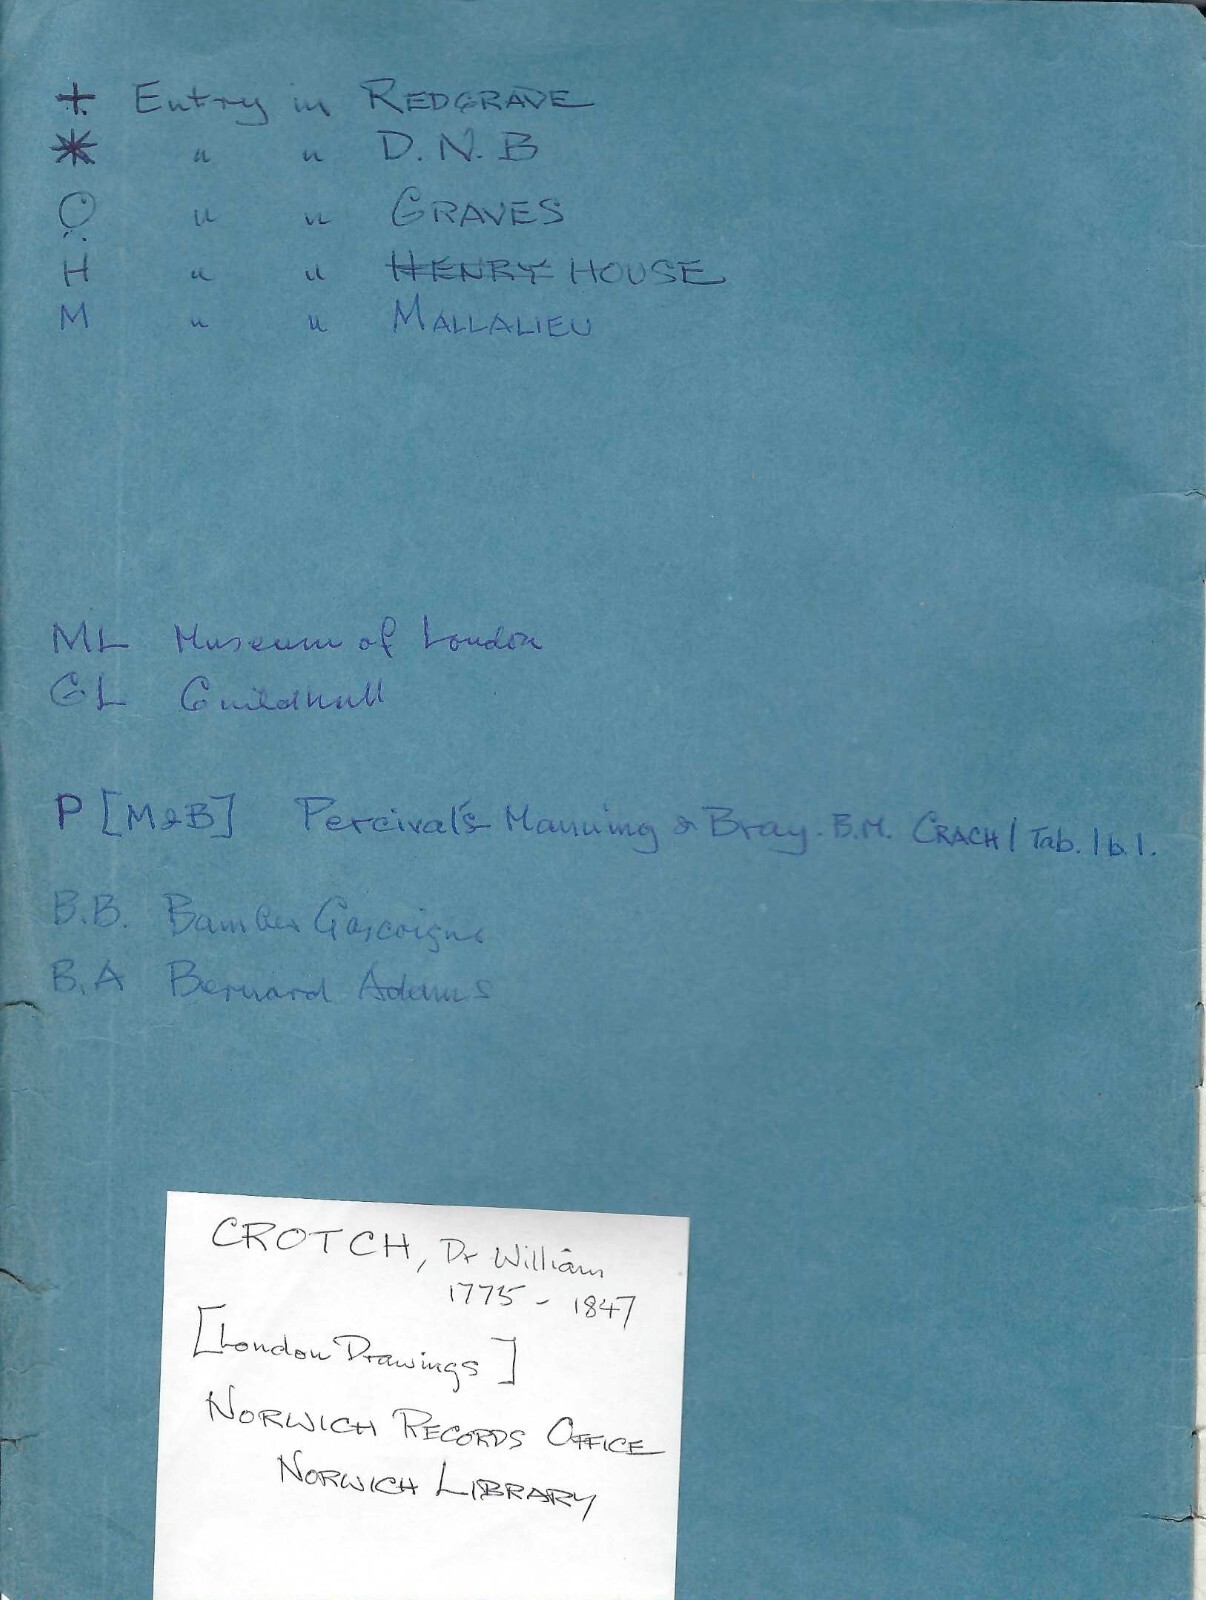 + Entry in REDGRAVE
* " " D.N.B
O " " GRAVES
H " " HENRY HOUSE
M " " MALLALIEU
ML Museum of London
GL Guildhall
P [M&B] Percival's Manning & Bray. B.M. CRACH/ Tab. 1b.1.
B.B. Bamber Gascoigne
B.A Bernard Adams
CROTCH, Dr William
1775 - 1847
[London Drawings]
NORWICH RECORDS OFFICE
NORWICH LIBRARY